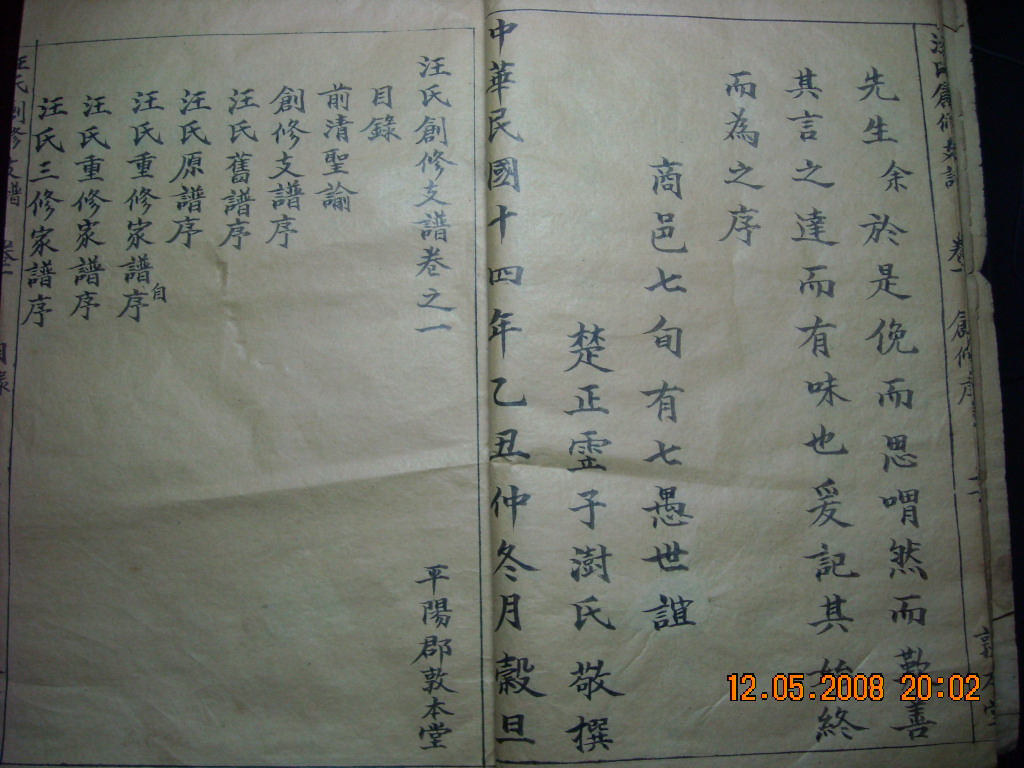 先生余於是俛而思喟然而歎善
其言之達而有味也爰記其始終
而為之序
商邑七旬有七愚世誼
楚正霊子澍氏敬撰
中華民國十四年乙丑仲冬月穀旦
汪氏創修支譜卷之一
平陽郡敦本堂
目錄
前清聖諭
創修支譜序
汪氏舊譜序
汪氏原譜序
汪氏重修家譜序自
汪氏重修家譜序
汪氏三修家譜序
汪氏創修支譜 卷一 目錄
12.05.2008 20:02